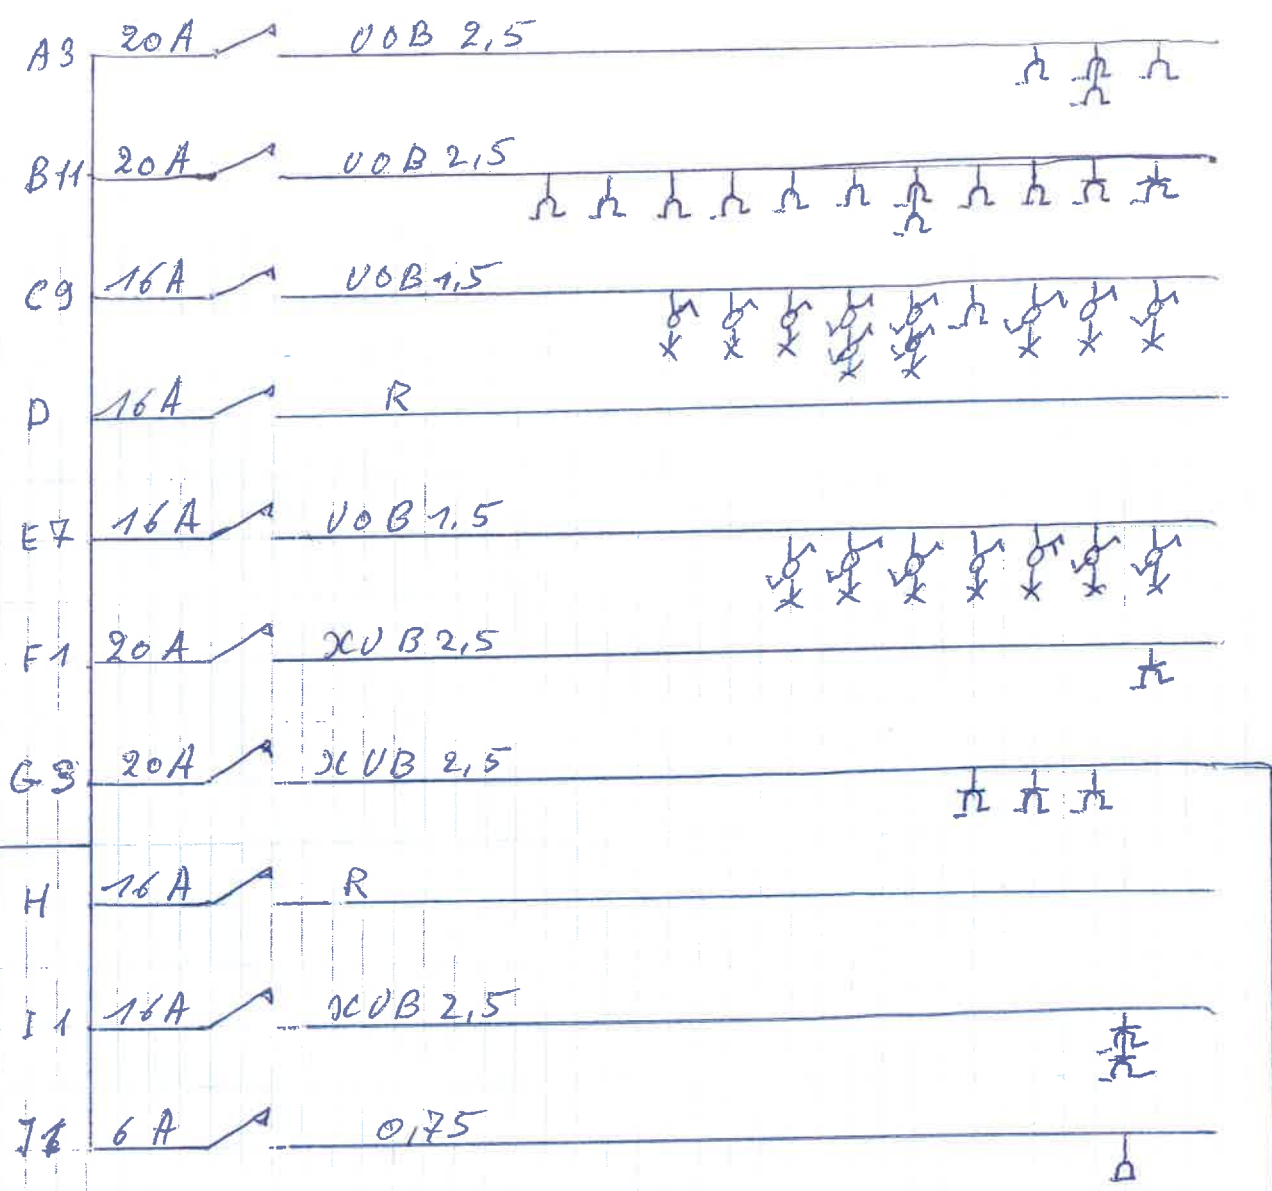 A3 20A VOB 2,5
B11 20A VOB 2,5
C9 16A VOB 1,5
D 16A R
E7 16A VOB 1.5
F1 20A XVB 2,5
G3 20A XVB 2,5
H 16A R
I1 16A XVB 2,5
6A 0,75